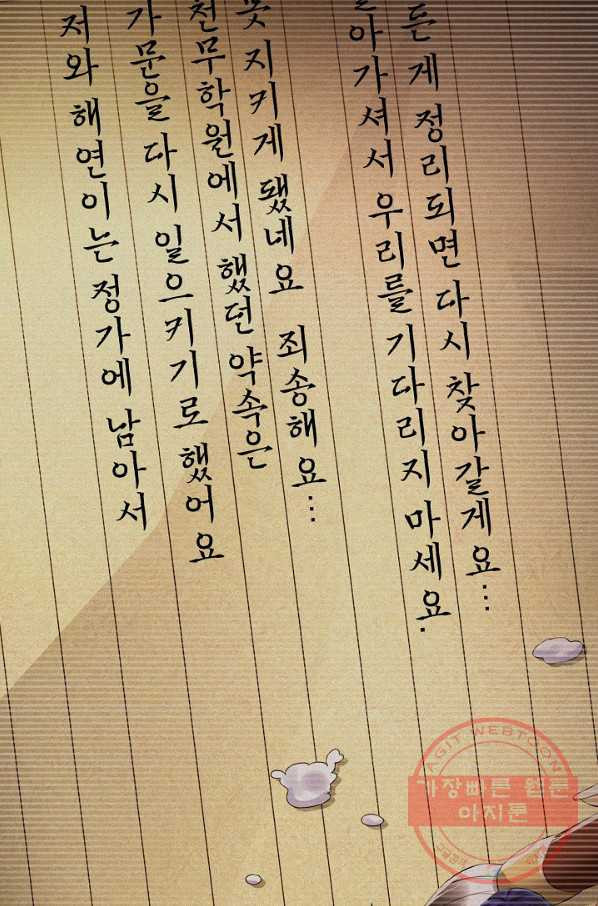 저와 해연이는 정가에 남아서
가문을 다시 일으키기로 했어요
천무학원에서 했던 약속은
못 지키게 됐네요 죄송해요...
아가셔서 우리를 기다리지 마세요.
든 게 정리되면 다시 찾아갈게요...
AGIT WEBTOON
가장빠른 웹툰
아지툰